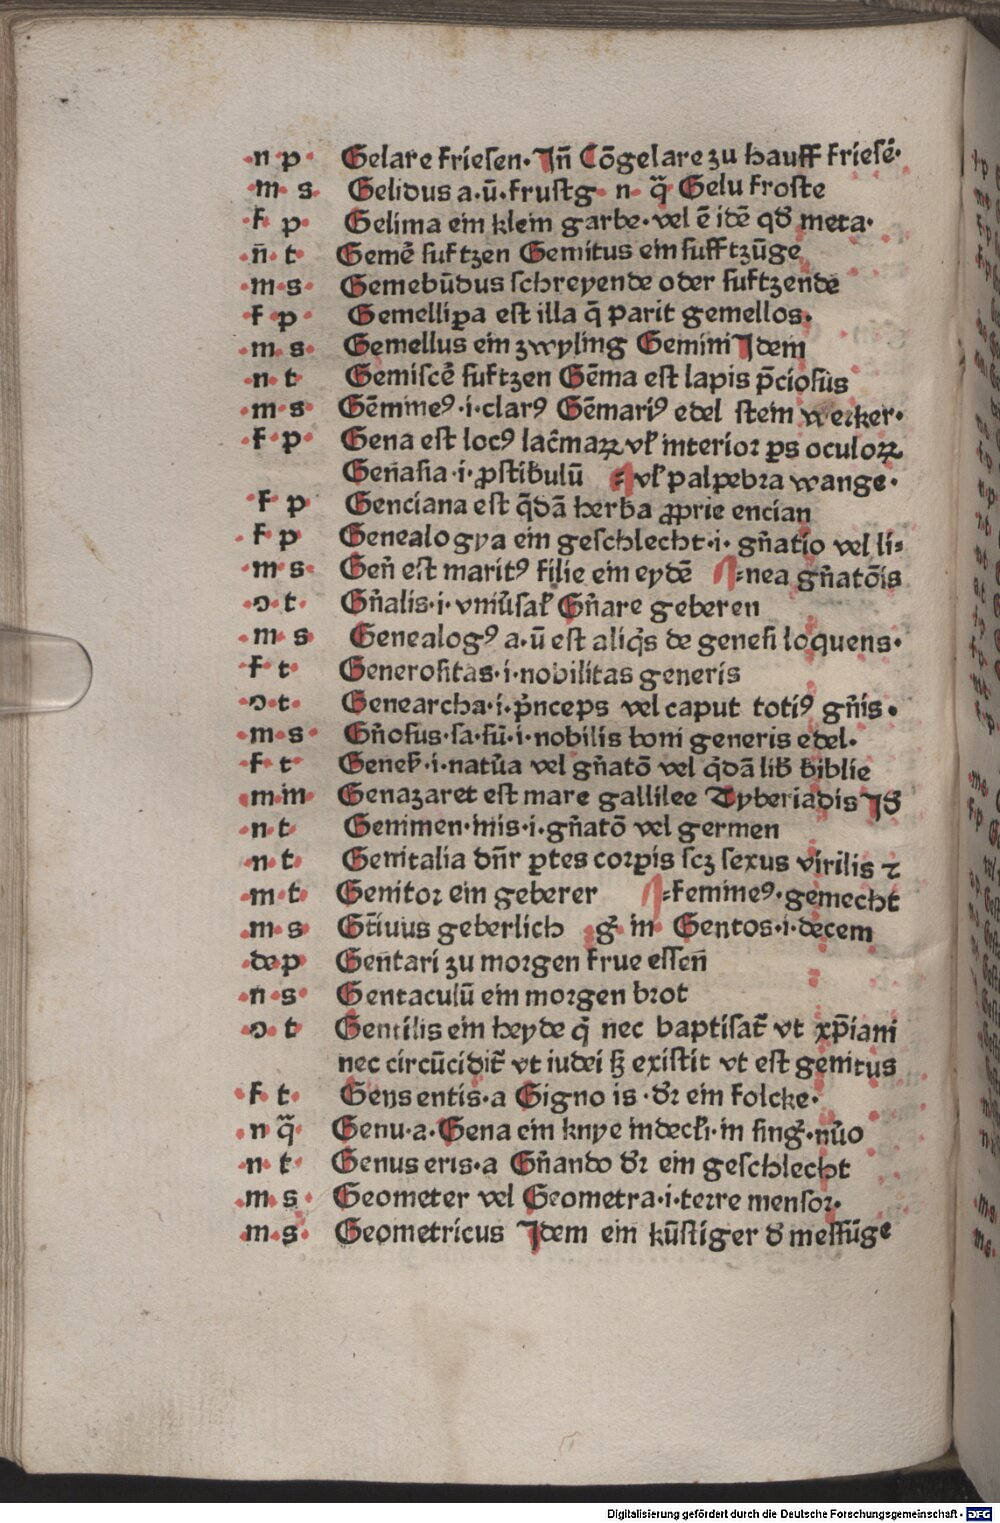 ·n p· Gelare friesen· Jn̄ Cōgelare zu hauff friesē·
·m· s· Gelidus a·ū· frustg· n· q̄ Gelu froste
·f· p· Gelima ein klein garbe· vel ē idē qd̓ meta·
·n̄· t· Gemē suftzen Gemitus ein sufftzūge
·m· s· Gemebūdus schreyende oder suftzende
·f· p· Gemellipa est illa q̄ parit gemellos·
·m· s· Gemellus ein zwyling Gemini Jdem
·n t· Gemiscē suftzen Gēma est lapis p̄ciosus
·m· s· Gēmeꝰ ·i· clarꝰ Gēmariꝰ edel stein werker·
·f· p· Gena est locꝰ lac̄maꝝ vl̓ interior ps oculoꝝ
Gen̄asia ·i· ꝓstibulū =vl̓ palpebra wange·
f p Genciana est q̄dā herba ꝓprie encian
·f p Genealogya ein geschlecht ·i· gn̄atio vel li=
·m· s· Gen̄ est maritꝰ filie ein eydē =nea gn̄atōis
·ɔ· t· Gn̄alis ·i· vniu̓sal̓ Gn̄are geberen
·m s Genealogꝰ a·ū est aliq̓s de genesi loquens·
f· t· Generositas ·i· nobilitas generis
·ɔ· t· Genearcha ·i· p̓nceps vel caput totiꝰ gn̄is·
·m· s· Gn̄osus·sa·sū· ·i· nobilis boni generis edel·
·f· t Genes̓ ·i· natu̓a vel gn̄atō vel q̄dā lib̓ biblie
·m·m· Genazaret est mare gallilee Tyberiadis Jd̓
·n t· Genimen·inis ·i· gn̄atō vel germen
·n t· Genitalia dn̄r ꝑtes corꝑis scꝫ sexus virilis ⁊
·m· t· Genitor ein geberer =femineꝰ·gemecht
·m· s Gt̄iuus geberlich g̓ in Gentos ·i· decem
de p· Gen̄tari zu morgen frue essen̄
·n s· Gentaculū ein morgen brot
·ɔ t· Gentilis ein heyde q̓ nec baptisat̄ vt xp̄iani
nec circūcidit̄ vt iudei sꝫ existit vt est genitus
·f· t· Gens entis·a Gigno is ·dr̓ ein folcke·
·n q̄· Genu·a·Gena ein knye indecl̓i·in sing̓·nu̓o
·n· t· Genus eris·a Gn̄ando dr̓ ein geschlecht
·m s· Geometer vel Geometra ·i· terre mensor·
·m· s· Geometricus Jdem ein kūstiger d̓ messūge
Digitalisierung gefördert durch die Deutsche Forschungsgemeinschaft - DFG